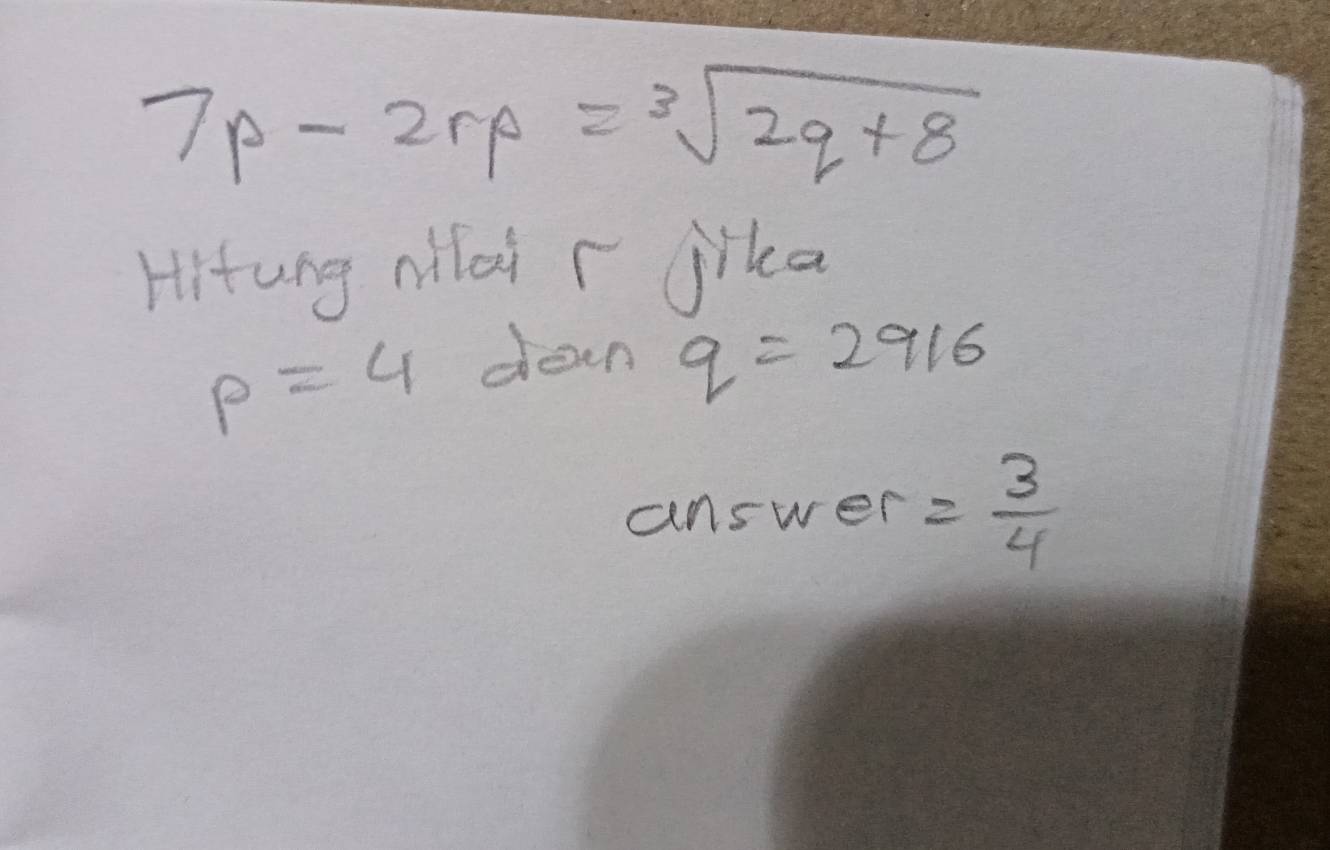 7p - 2rp = ∛(2q + 8)
Hitung nilai r jika
p = 4 dan q = 2916
answer = 3/4